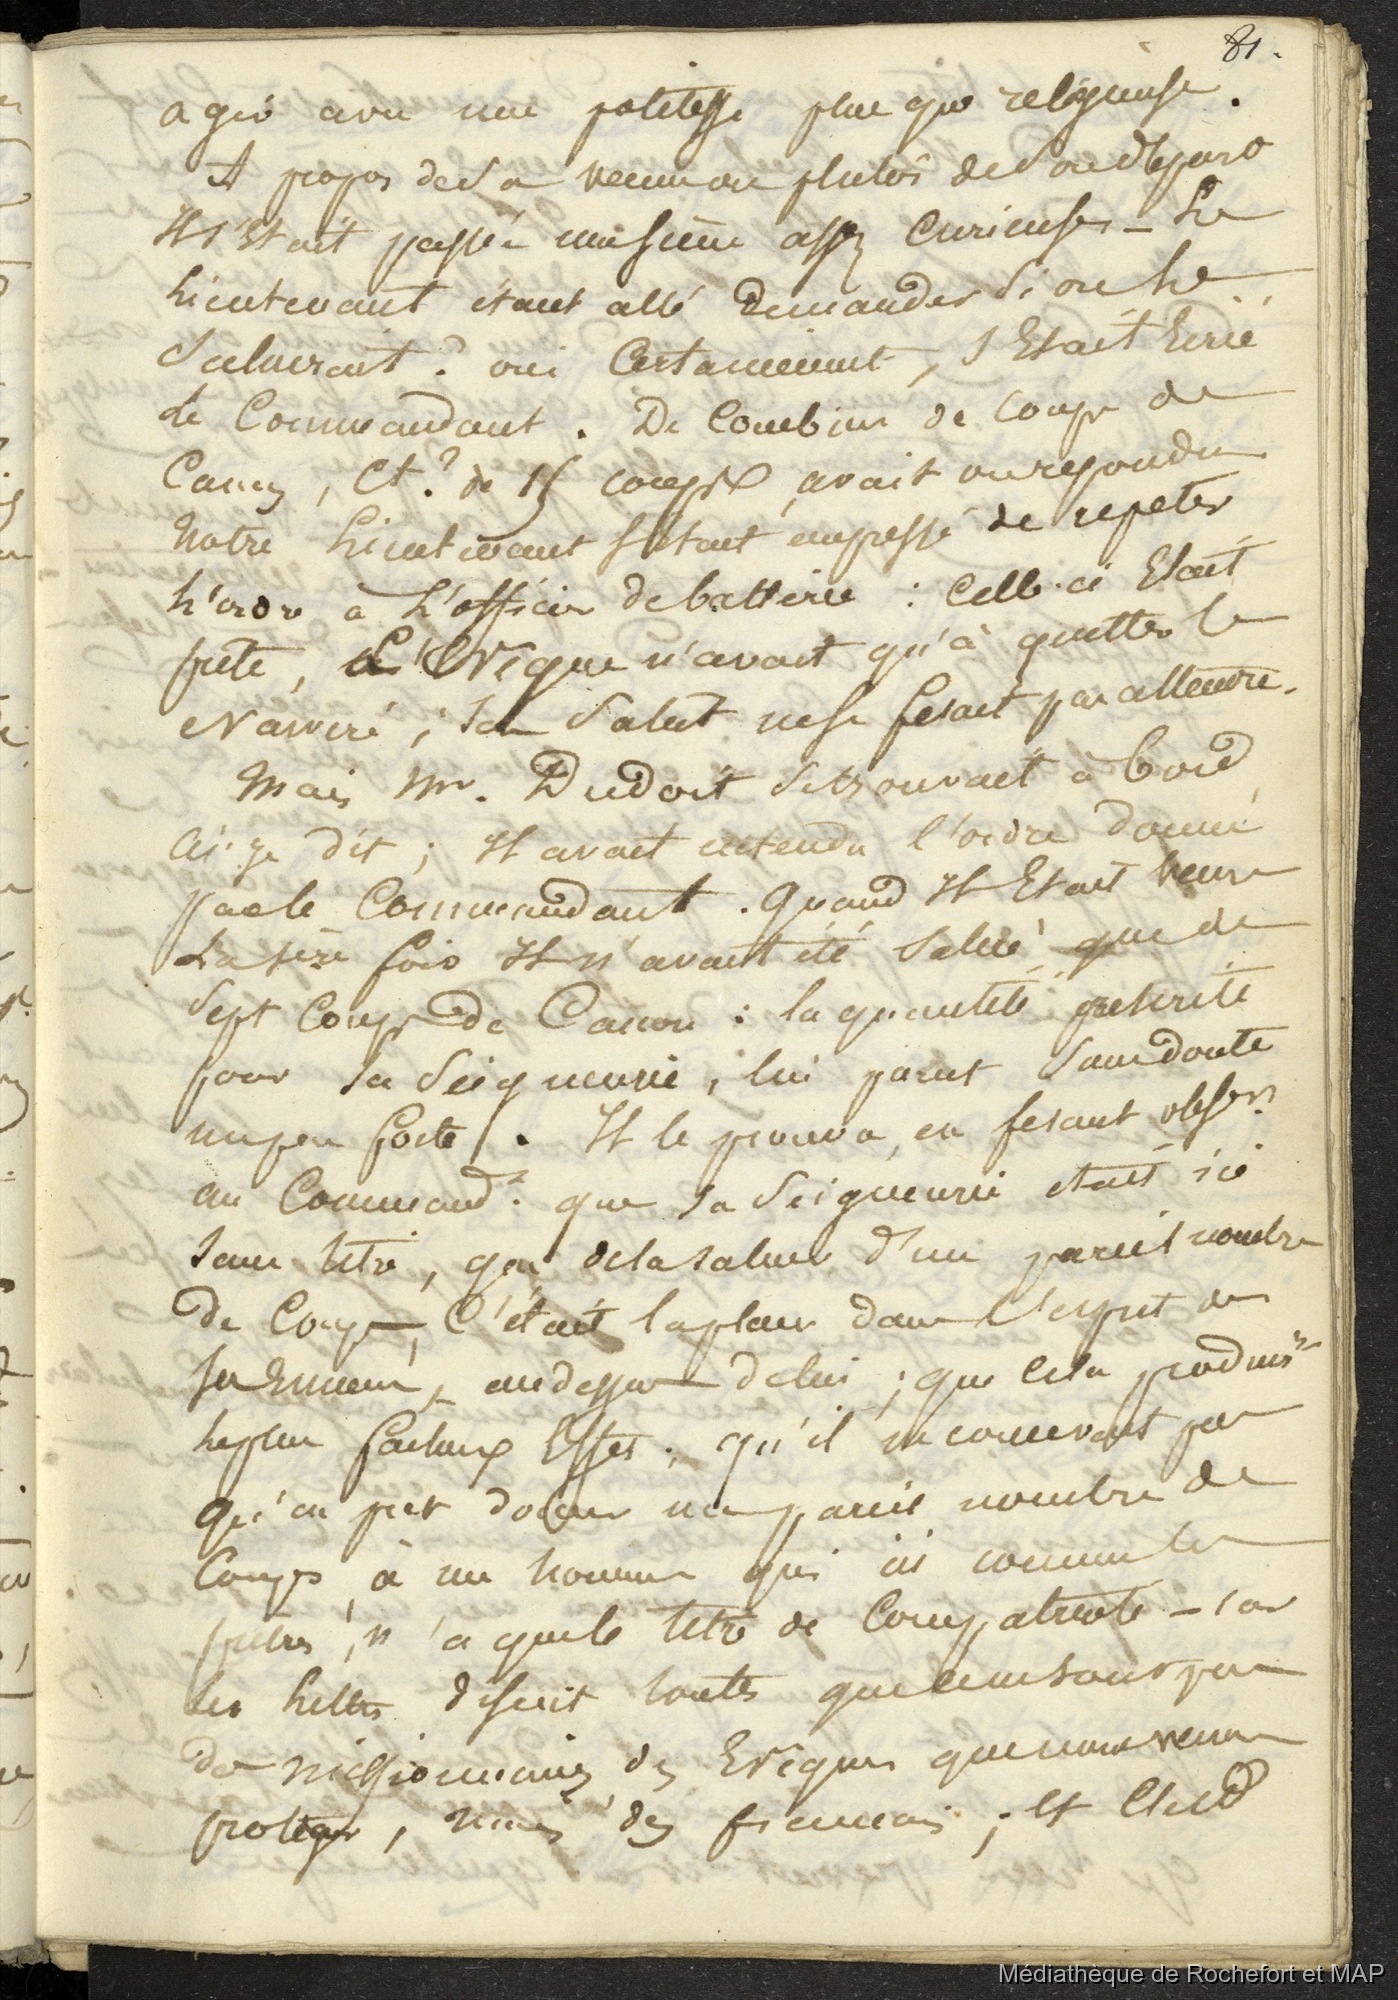 81.
agir avec une politesse plus que religieuse.
A propos de sa venue ou plutôt de son départ
Il s'Etait passé une scène assez curieuse – Le
Lieutenant étant allé demander si on le
saluerait ? oui Certainement, s'Etait Ecrié
Le Commandant. De Combien de coups de
Canon, Ct.? de 15 coups avait on repondu
Notre Lieutenant s'étant empressé de repeter
L'ordre à L'officier de batterie : Celle-ci Etait
prete, L'Evêque n'avait qu'à quitter le
Navire ; son Salut ne se fesait pas attendre.
Mais Mr. Dudoit se trouvait à bord,
ai-je dit ; Il avait entendu l'ordre donné
par le Commandant. Quand Il Etait venu
La 1ere fois Il n'avait été Salué que de
Sept Coups de Canon : la quantité prescrite
pour sa Seigneurie, lui parut Sans doute
un peu forte. Il le prouva, en fesant observ.
au Command.t que sa Seigneurie etait ici
sans titre, que de la saluer d'un pareil nombre
de Coups, C'était la placer dans l'esprit de
ses Ennemis, au dessus de lui ; que cela produis.
le plus facheux Effet ; qu'il ne concevait pas
qu'on put donner un pareil nombre de
Coups à un homme qui ici comme les
prêtres, n'a que le titre de Compatriote – car
les lettres disent toutes que ce ne sont pas
des missionnaires, des Evêques que nous venons
proteger, mais des francais ; Et C'est